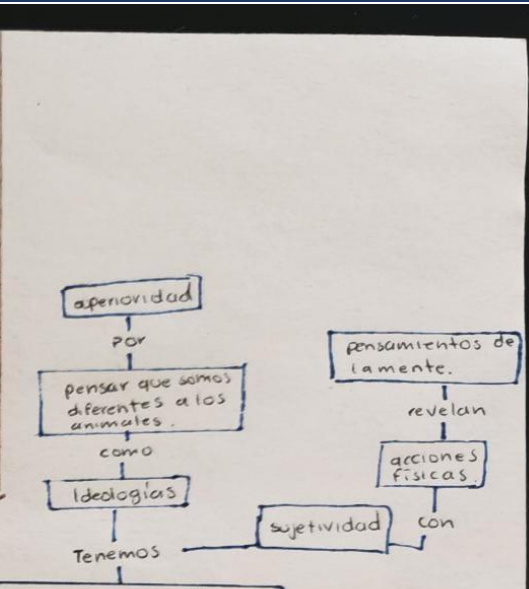 aperioridad
Por
pensar que somos
diferentes a los
animales.
como
Ideologías
Tenemos
sujetividad
pensamientos de
la mente.
revelan
acciones
físicas.
con